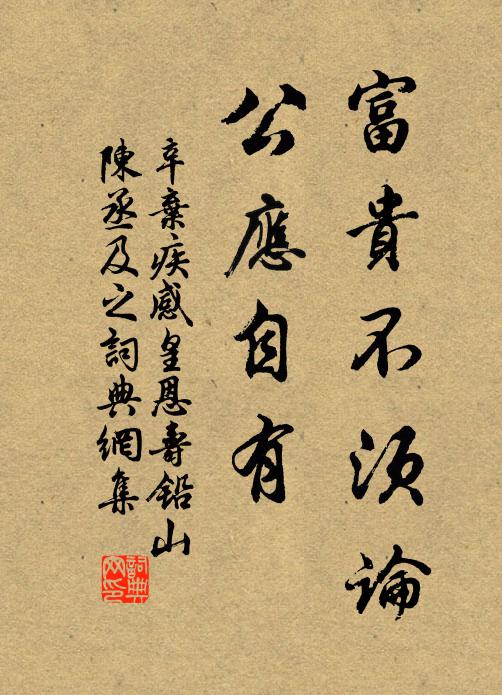 富貴不須論
公應自有
辛棄疾感皇恩壽鉛山
陳丞及之詞典網集
詞典网印